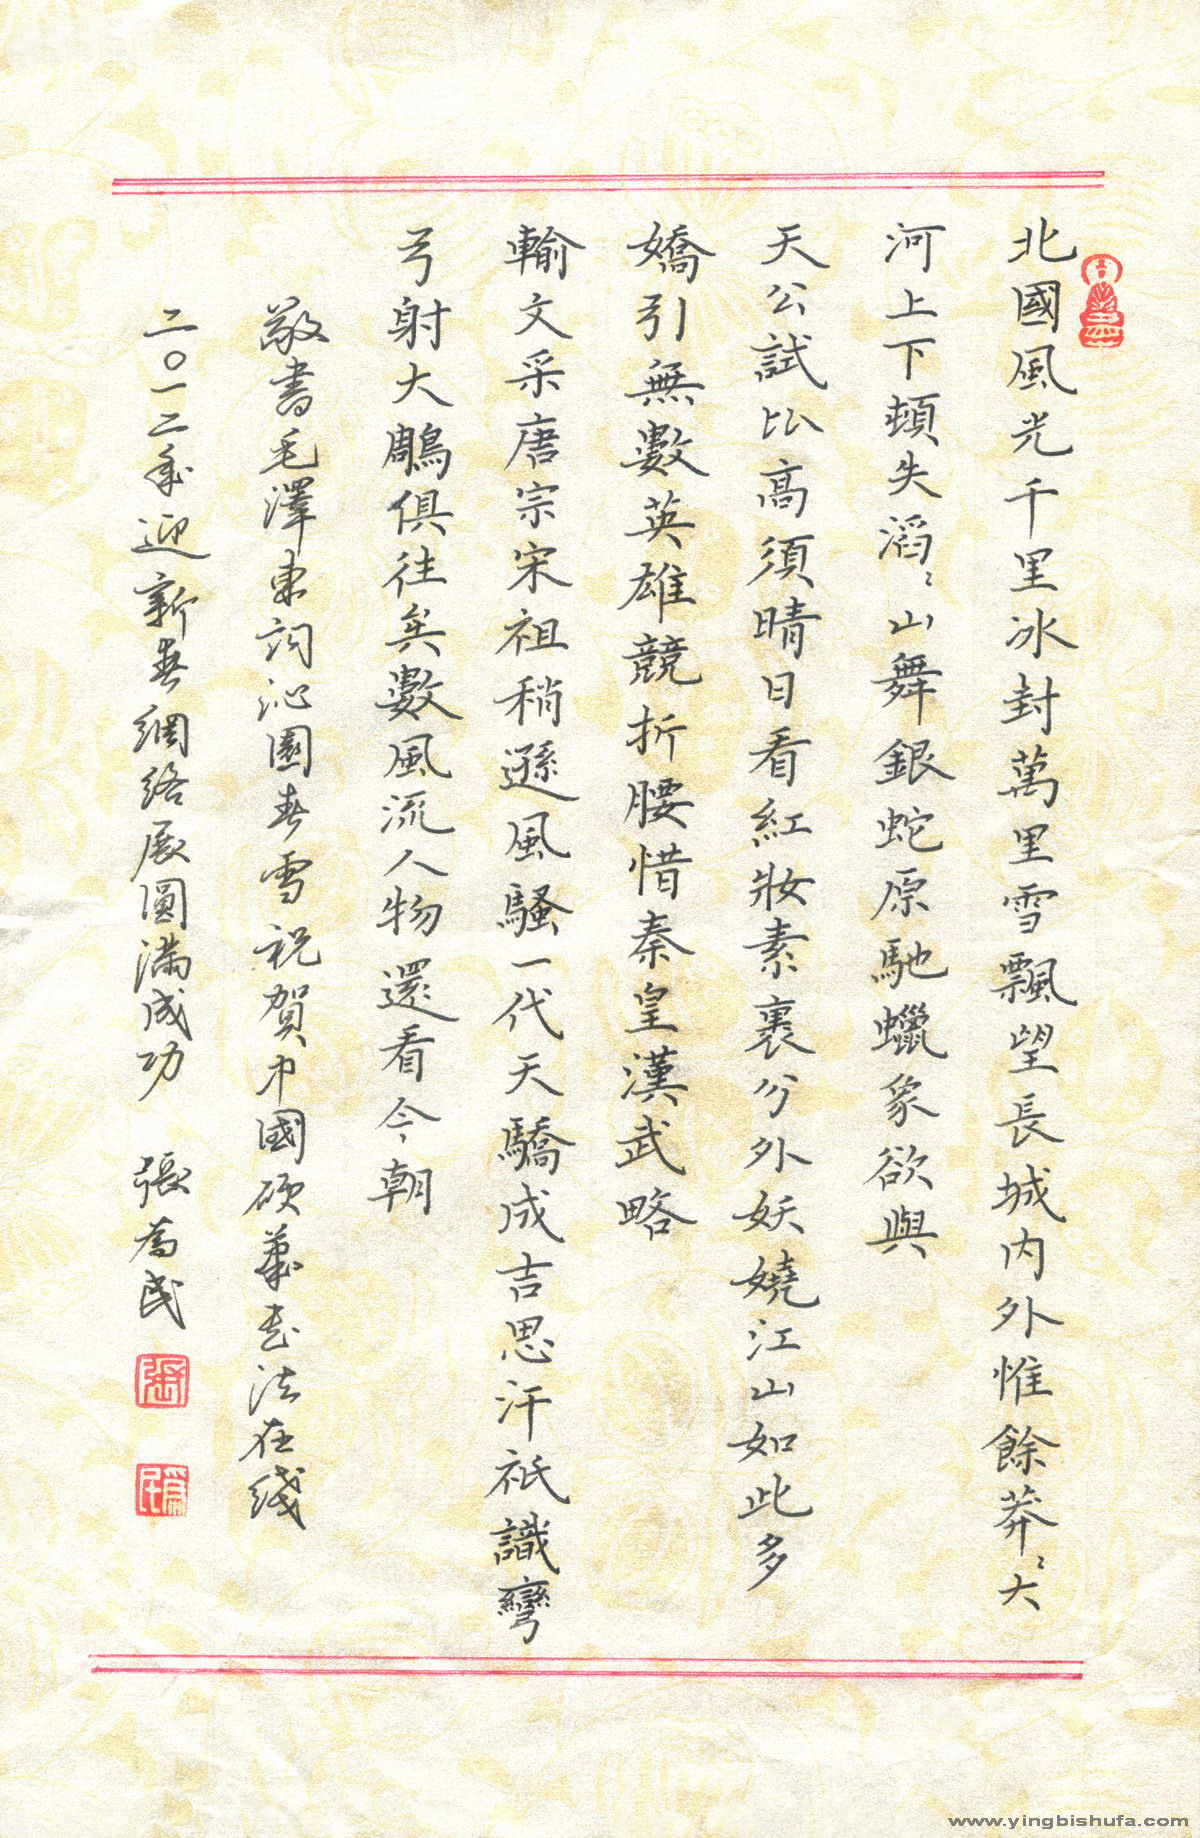 北國風光千里冰封萬里雪飄望長城内外惟餘莽〻大
河上下頓失滔〻山舞銀蛇原馳蠟象欲與
天公試比高須晴日看紅妝素裹分外妖嬈江山如此多
嬌引無數英雄競折腰惜秦皇漢武略
輸文采唐宗宋祖稍遜風騷一代天驕成吉思汗祇識彎
弓射大鵰俱往矣數風流人物還看今朝
敬書毛澤東詞沁園春雪祝賀中國硬筆書法在綫
二〇一二年迎新春網络展圓滿成功 張為民
張
為民
www.yingbishufa.com